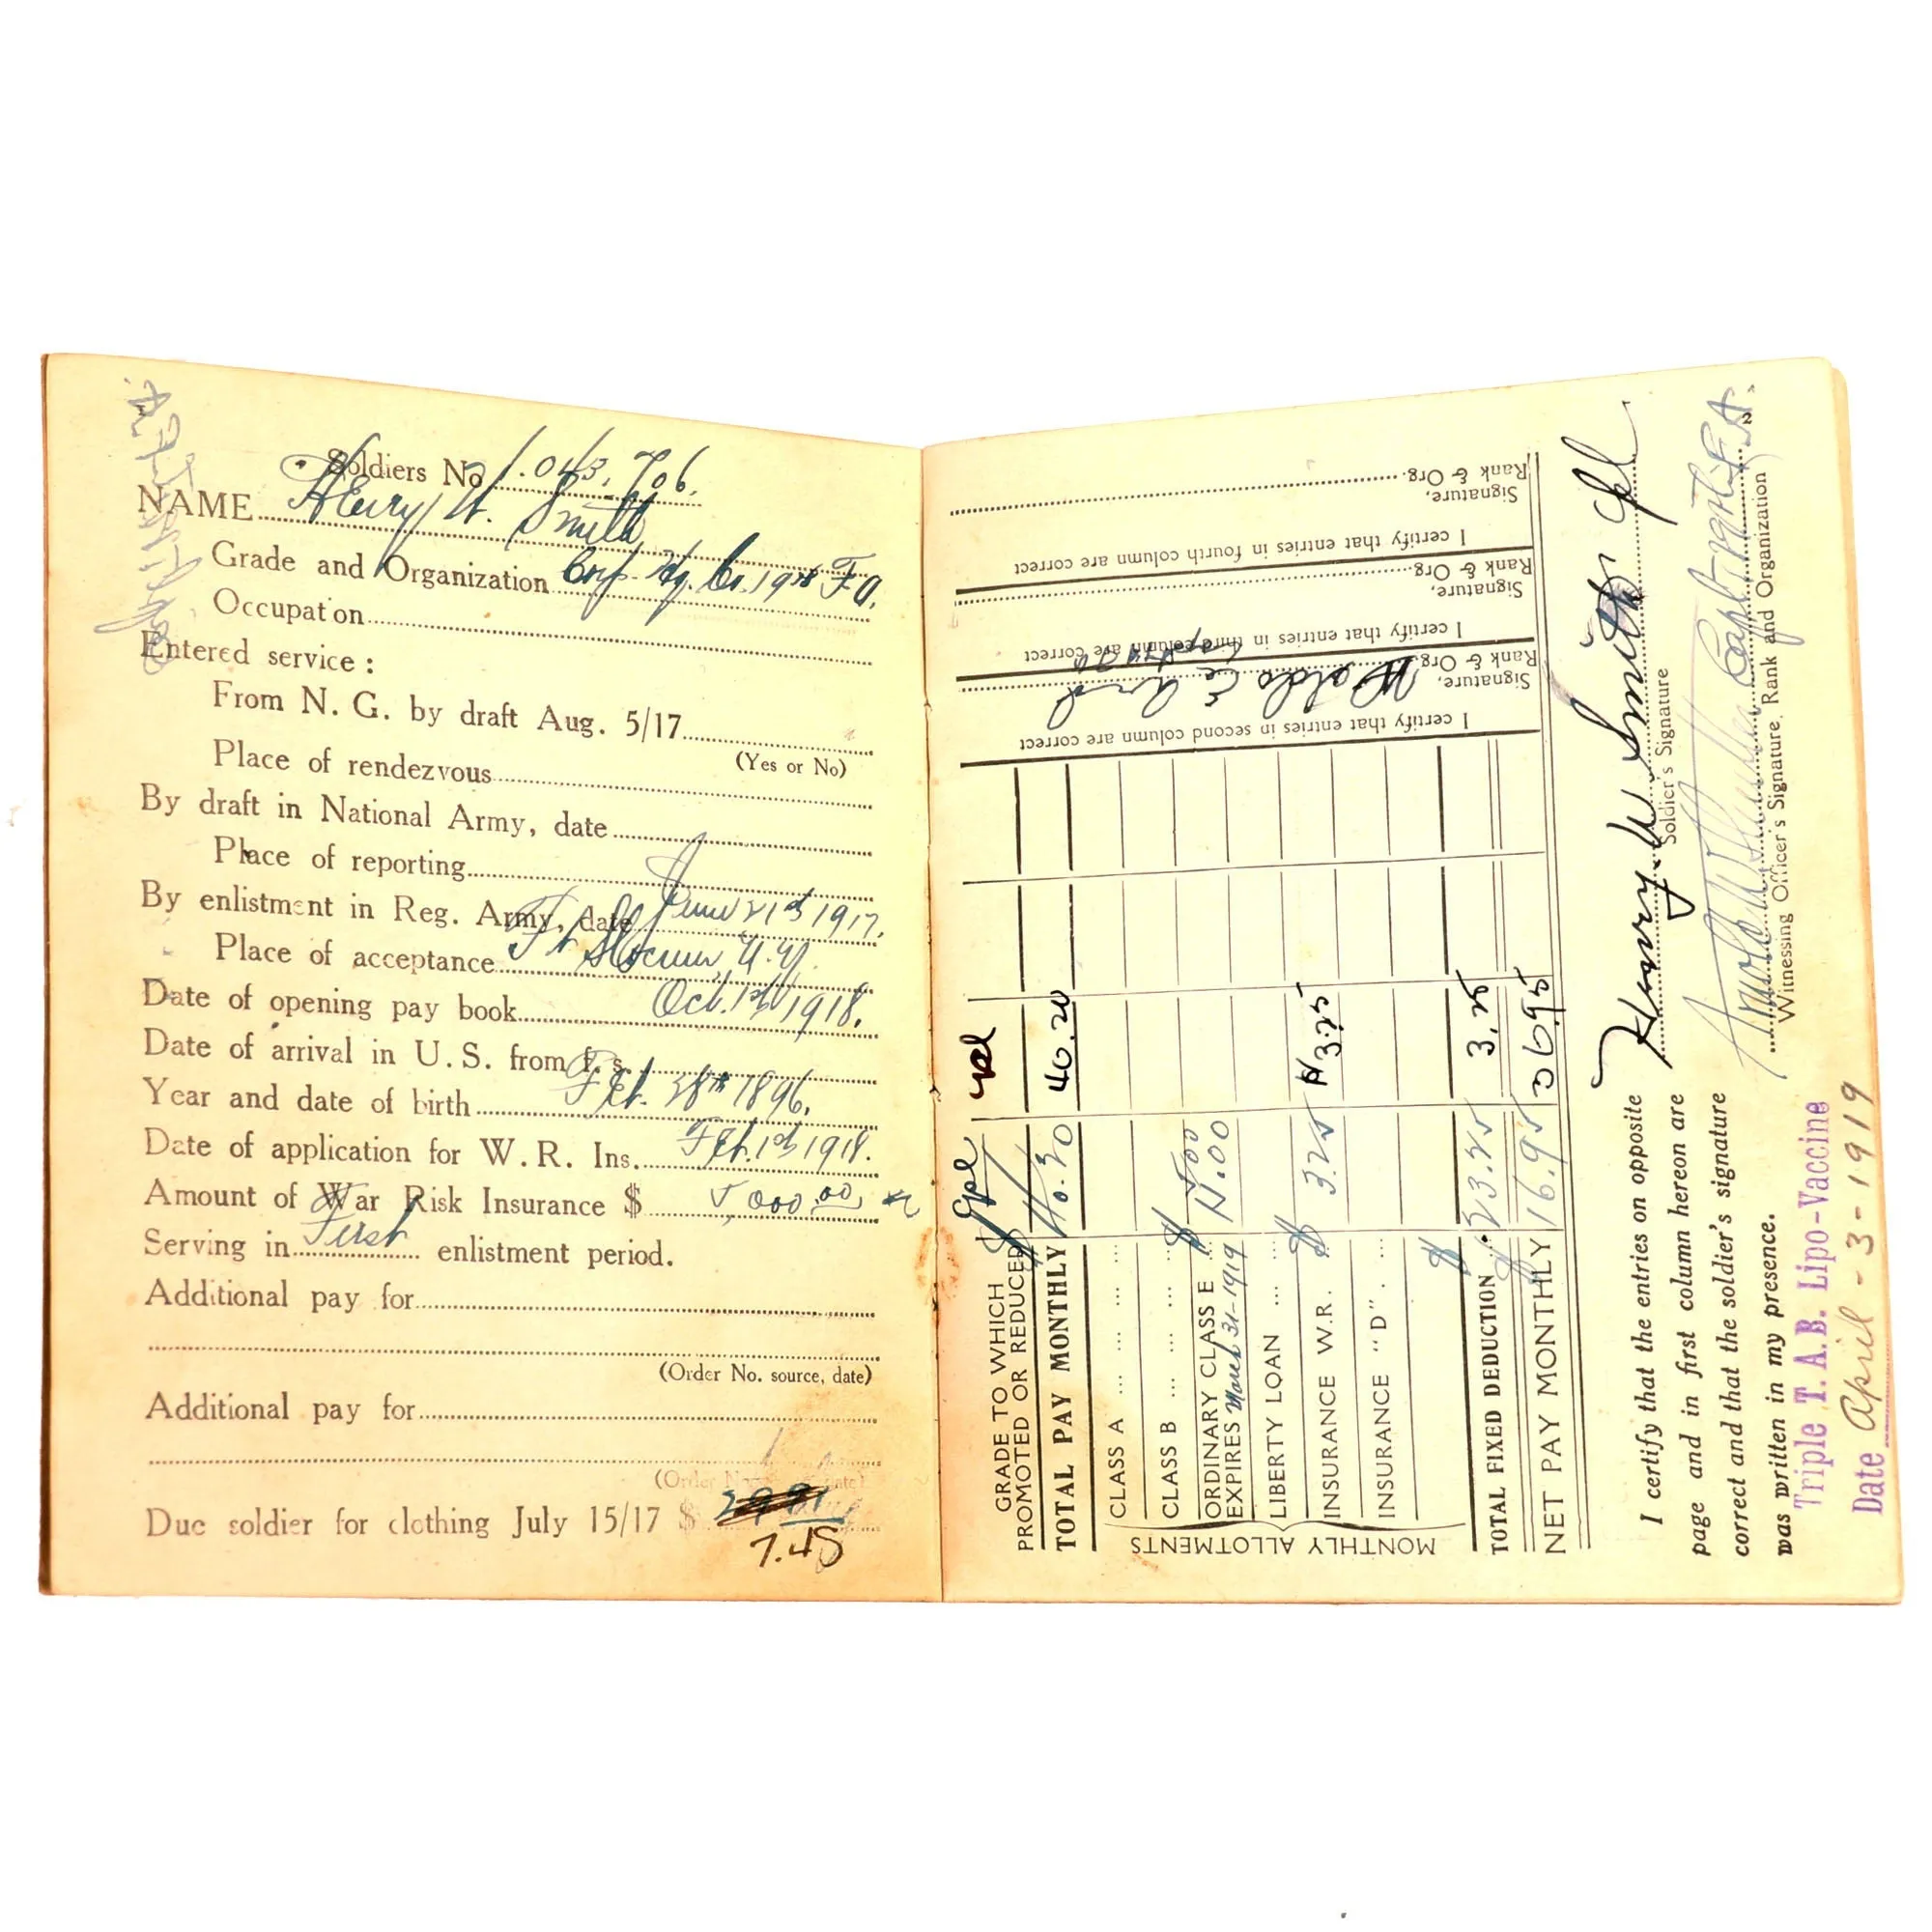 Soldiers No 1.043.706.
NAME Henry W. Smith
Grade and Organization Corp. Hq. Co. 19th F.A.
Occupation
Entered service :
From N. G. by draft Aug. 5/17
(Yes or No)
Place of rendezvous
By draft in National Army, date
Place of reporting
By enlistment in Reg. Army, date June 21st 1917.
Place of acceptance Ft Slocum N.Y.
Date of opening pay book Oct. 1st 1918.
Date of arrival in U.S. from f. s.
Year and date of birth Feb. 28th 1896.
Date of application for W.R. Ins. Feb. 1st 1918.
Amount of War Risk Insurance $ 5,000.00
Serving in First enlistment period.
Additional pay for
(Order No. source, date)
Additional pay for
(Order
Due soldier for clothing July 15/17 $ 29 91
7.45
GRADE TO WHICH PROMOTED OR REDUCED Cpl
TOTAL PAY MONTHLY 40.20 40.20
MONTHLY ALLOTMENTS
CLASS A
CLASS B $ 5 00
ORDINARY CLASS E 15.00
EXPIRES March 31-1919
LIBERTY LOAN
INSURANCE W.R. $ 3.25 3.25
INSURANCE "D"
$
TOTAL FIXED DEDUCTION 23.25 3.25
NET PAY MONTHLY 16.95 36.95
I certify that entries in second column are correct
Signature, Waldo E. Ard
Rank & Org. Capt 19 FA
I certify that entries in third column are correct
Signature,
Rank & Org.
I certify that entries in fourth column are correct
Signature,
Rank & Org.
I certify that the entries on opposite
page and in first column hereon are
correct and that the soldier's signature
was written in my presence.
Henry W Smith Cpl
Soldier's Signature
Capt 19th F.A.
Witnessing Officer's Signature, Rank and Organization
2
Triple T. A. B. Lipo-Vaccine
Date April - 3 - 1919